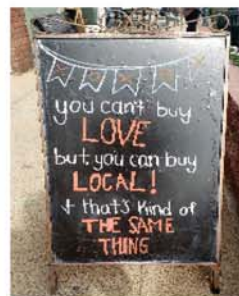 you can't buy
LOVE
but you can buy
LOCAL!
+ that's kind of
THE SAME
THING